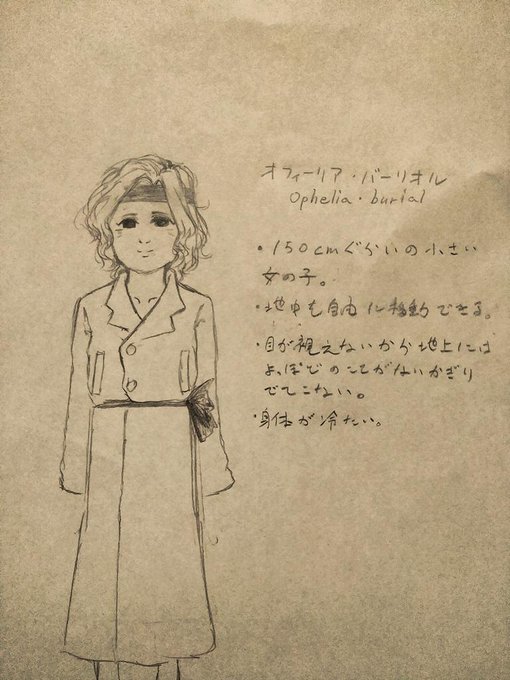 オフィーリア・バーリオル
Ophelia・burial
・150cmぐらいの小さい
女の子。
・地中を自由に移動できる。
・目が視えないから地上には
よっぽどのことがないかぎり
でてこない。
・身体が冷たい。